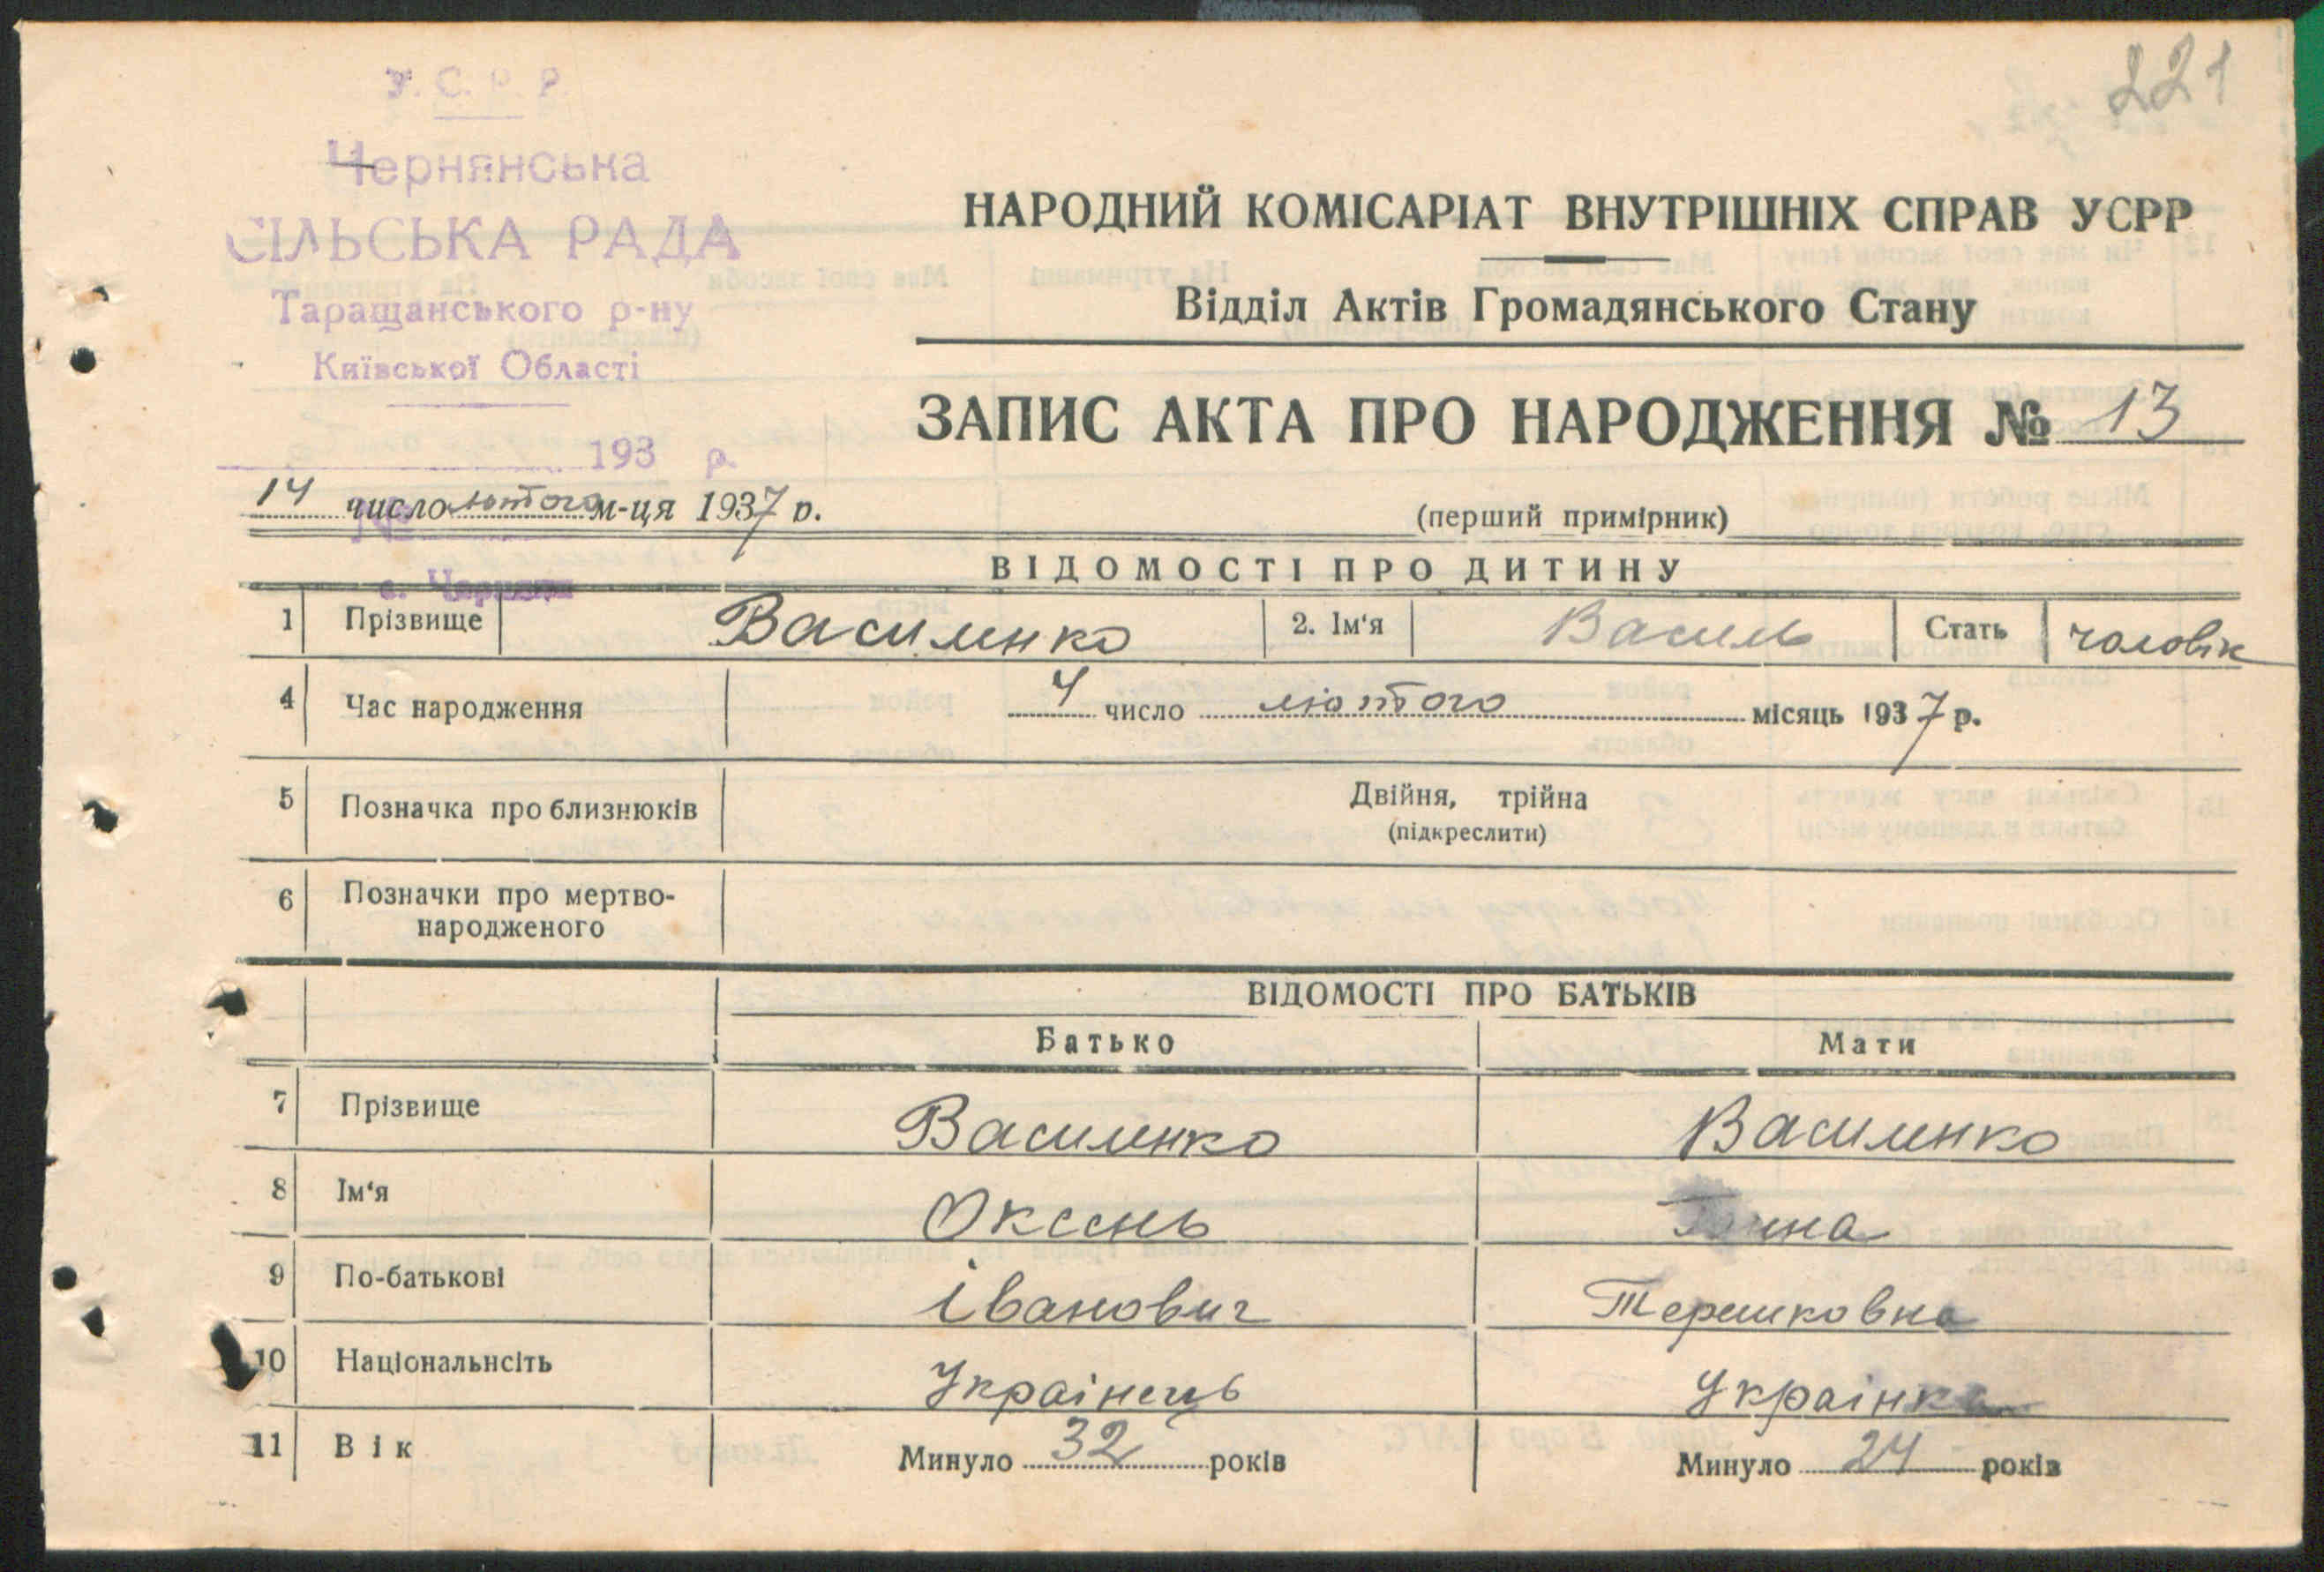 221
У. С. Р. Р.
Чернянська
СІЛЬСЬКА РАДА
Таращанського р-ну
Київської Області
193 р.
№
с. Черняни
14 число лютого м-ця 1937 р.
НАРОДНИЙ КОМІСАРІАТ ВНУТРІШНІХ СПРАВ УСРР
Відділ Актів Громадянського Стану
ЗАПИС АКТА ПРО НАРОДЖЕННЯ № 13
(перший примірник)
ВІДОМОСТІ ПРО ДИТИНУ
1 Прізвище Василенко 2. Ім'я Василь Стать чоловік
4 Час народження 4 число лютого місяць 1937 р.
5 Позначка про близнюків Двійня, трійна
(підкреслити)
6 Позначки про мертво-
народженого
ВІДОМОСТІ ПРО БАТЬКІВ
Батько Мати
7 Прізвище Василенко Василенко
8 Ім'я Оксень
9 По-батькові Іванович Терешковна
10 Національнсіть Українець Українка
11 Вік Минуло 32 років Минуло 24 років